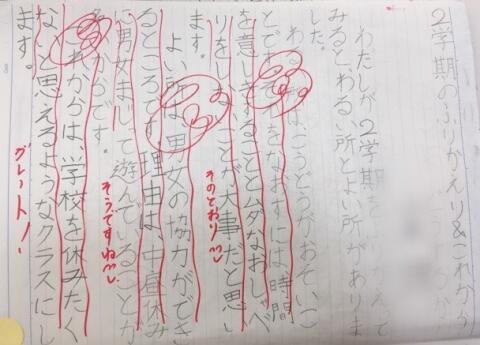 ２学期のふりかえり&これから
わたしが２学期をかえって
みるとわるい所とよい所がありま
した。
わるい所はこうどうがおそいこ
とです。それをなおすには時間
を意しきすることとムダなおしゃべ
りをしないことが大事だと思い
ます。
そのとおり
よい所は、男女の協力ができ
るところです。理由は、中庭休み
に男女まじって遊んでいることが
多いからです。
そうですね
これからは、学校を休みたく
ないと思えるようなクラスにし
ます。
グレート！